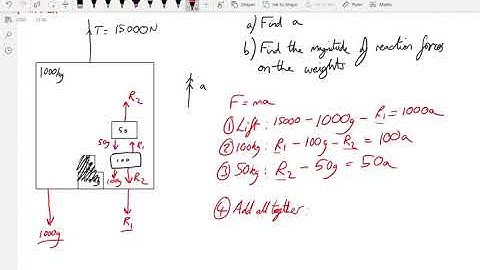 Shapes
Ink to Shape
T= 15000N
a) Find a
b) Find the magnitude of reaction forces
on the weights
1000kg
R₂
a
50
50g
R₁
100
100g
R₂
F=ma
① Lift: 15000-1000g-R₁=1000a
② 100kg: R₁-100g-R₂=100a
③ 50kg: R₂-50g=50a
④ Add all together:
1000g
R₁